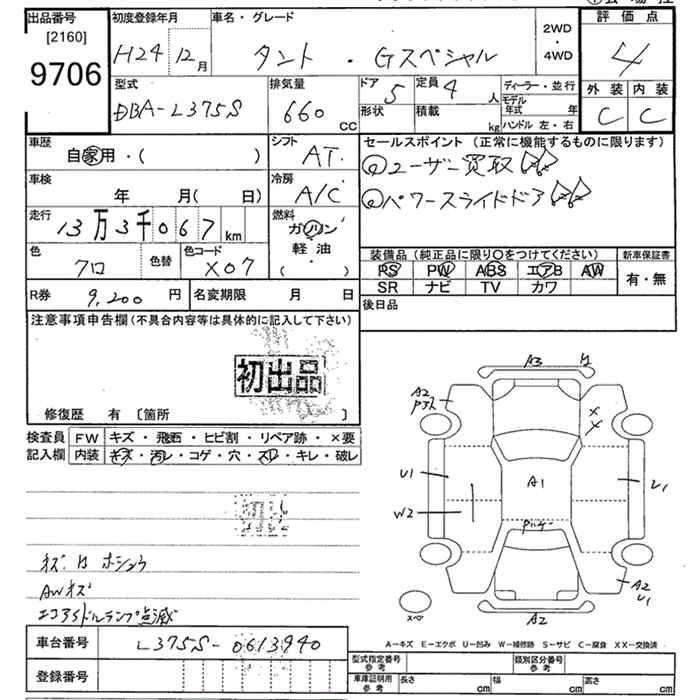 出品番号 初度登録年月 車名・グレード 2WD・4WD 評価点
[2160]
9706 H24 12月 タント・Gスペシャル 4
型式 排気量 ドア 5 定員 4人 ディーラー・並行 外装 内装
DBA-L375S 660cc 形状 積載 kg モデル年式 年 C C
ハンドル 左・右
車歴 シフト セールスポイント (正常に機能するものに限ります)
自家用・( ) AT ユーザー買取
車検 冷房 パワースライドドア
年 月(日) A/C
走行 燃料
13万3千067km ガソリン
軽油
( )
色 色替 色コード 装備品 (純正品に限り○をつけてください) 新車保証書
クロ X07 PS PW ABS エアB AW 有・無
SR ナビ TV カワ
R券 9,200円 名変期限 月 日 後日品
注意事項申告欄 (不具合内容等は具体的に記入して下さい)
初出品
修復歴 有 [箇所 ]
検査員 FW キズ・飛石・ヒビ割・リペア跡・×要
記入欄 内装 キズ・汚レ・コゲ・穴・スレ・キレ・破レ
A3
A2
××
U1 A1 U1
W2
A2
U1
A2
スペ
AWキズ
エコアイドルランプ点滅
A=キズ E=エクボ U=凹み W=補修跡 S=サビ C=腐食 XX=交換済
車台番号 L375S-0613940
登録番号
型式指定番号 参考 類別区分番号 参考
車庫証明用 参考 長さ cm 幅 cm 高さ cm